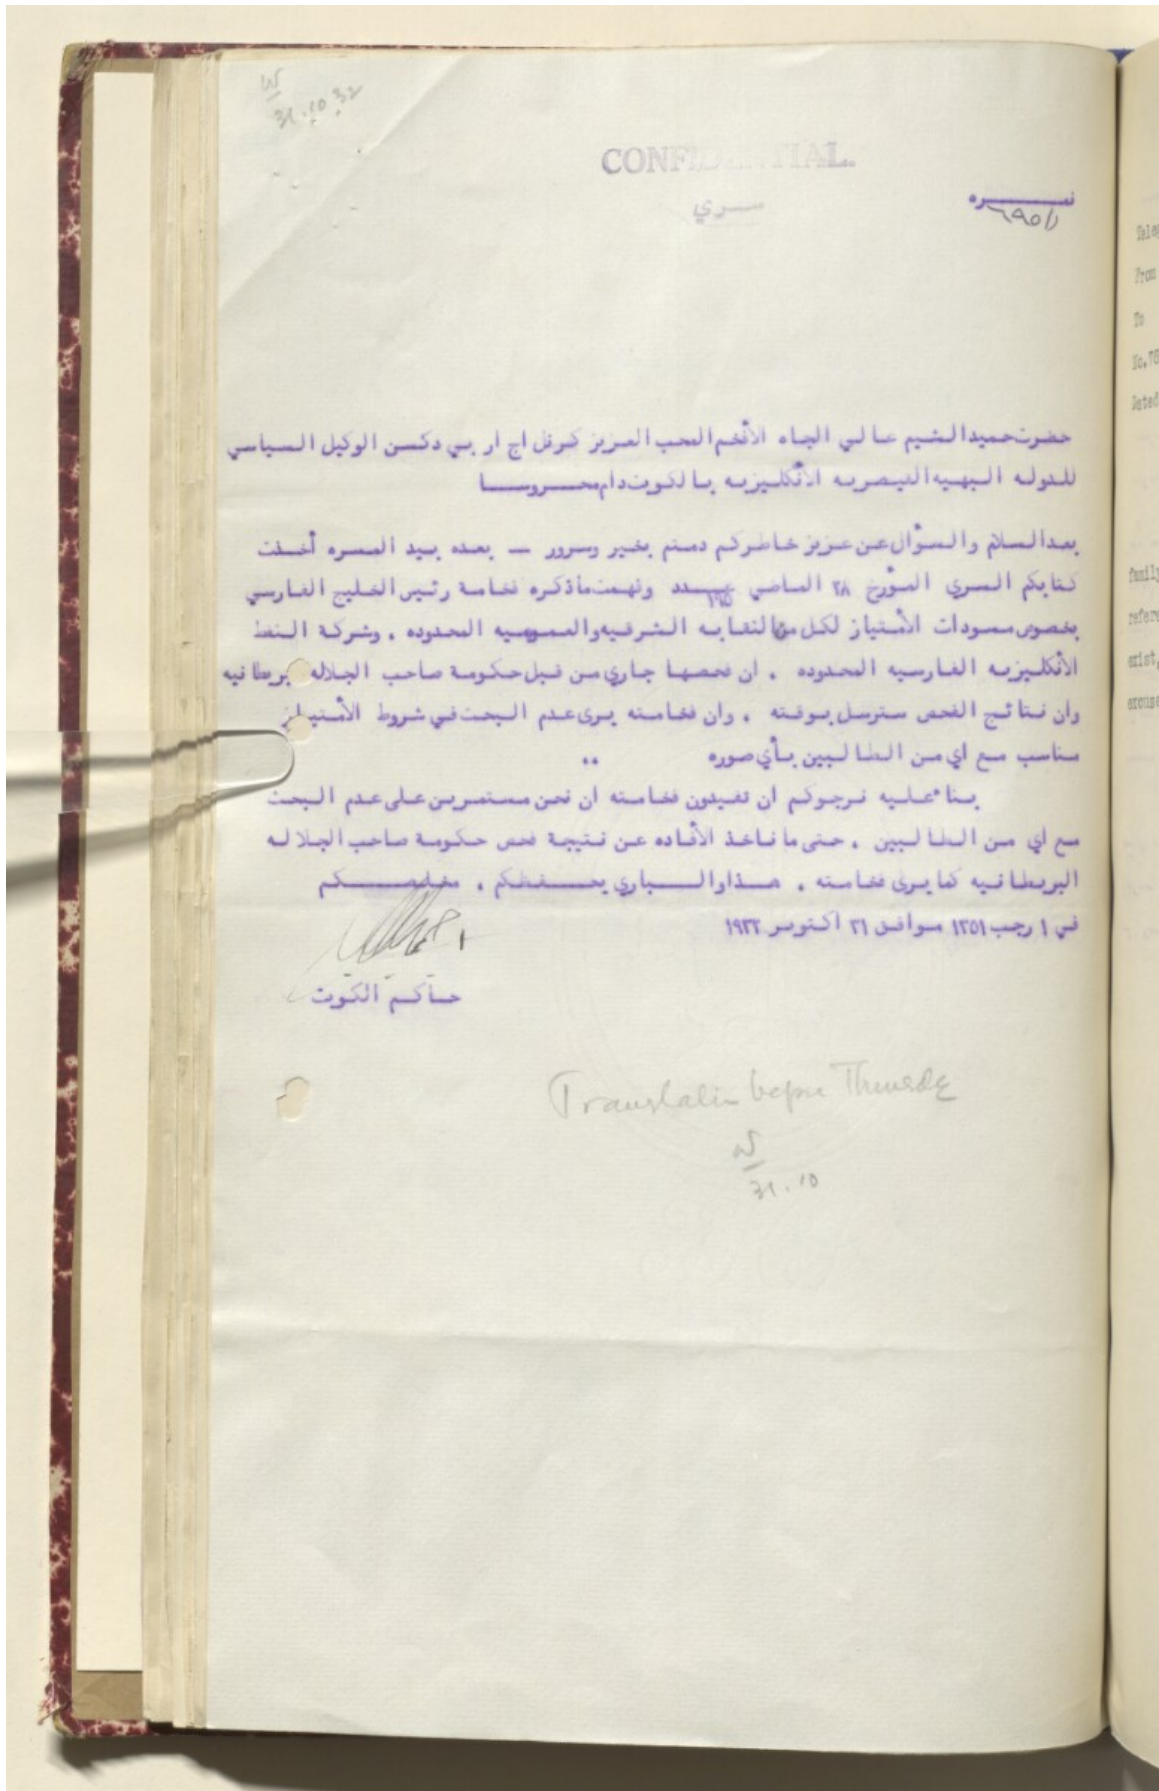 31.10.32
CONFIDENTIAL.
سري
نمره
حضرت حميد الشيم عالي الجاه الأفخم المحب العزيز كرنل اج ار بي دكسن الوكيل السياسي
للدوله البهيه القيصريه الأنكليزيه بالكويت دام محروسا
بعد السلام والسؤال عن عزيز خاطركم دمتم بخير وسرور — بعده بيد المسره أخذت
كتابكم السري المؤرخ ٢٨ الماضي عدد وفهمت ماذكره فخامة رئيس الخليج الفارسي
بخصوص مسودات الأمتياز لكل من النقابه الشرقيه والعموميه المحدوده . وشركة النفط
الأنكليزيه الفارسيه المحدوده . ان فحصها جاري من قبل حكومة صاحب الجلاله بريطانيه
وان نتائج الفحص سترسل بوقته . وان فخامته يرى عدم البحث في شروط الأمتياز
مناسب مع اي من الطالبين بأي صوره ..
بناء عليه نرجوكم ان تفيدون فخامته ان نحن مستمرين على عدم البحث
مع اي من الطالبين . حتى ما ناخذ الأفاده عن نتيجة فحص حكومة صاحب الجلاله
البريطانيه كما يرى فخامته . هذا والباري يحفظكم . مخلصكم
في ١ رجب ١٣٥١ موافق ٣١ اكتوبر ١٩٣٢
حاكم الكويت
Translation before Thursday
31.10
Tele
From
To
No.78
Dated
family
refere
exist,
arouse